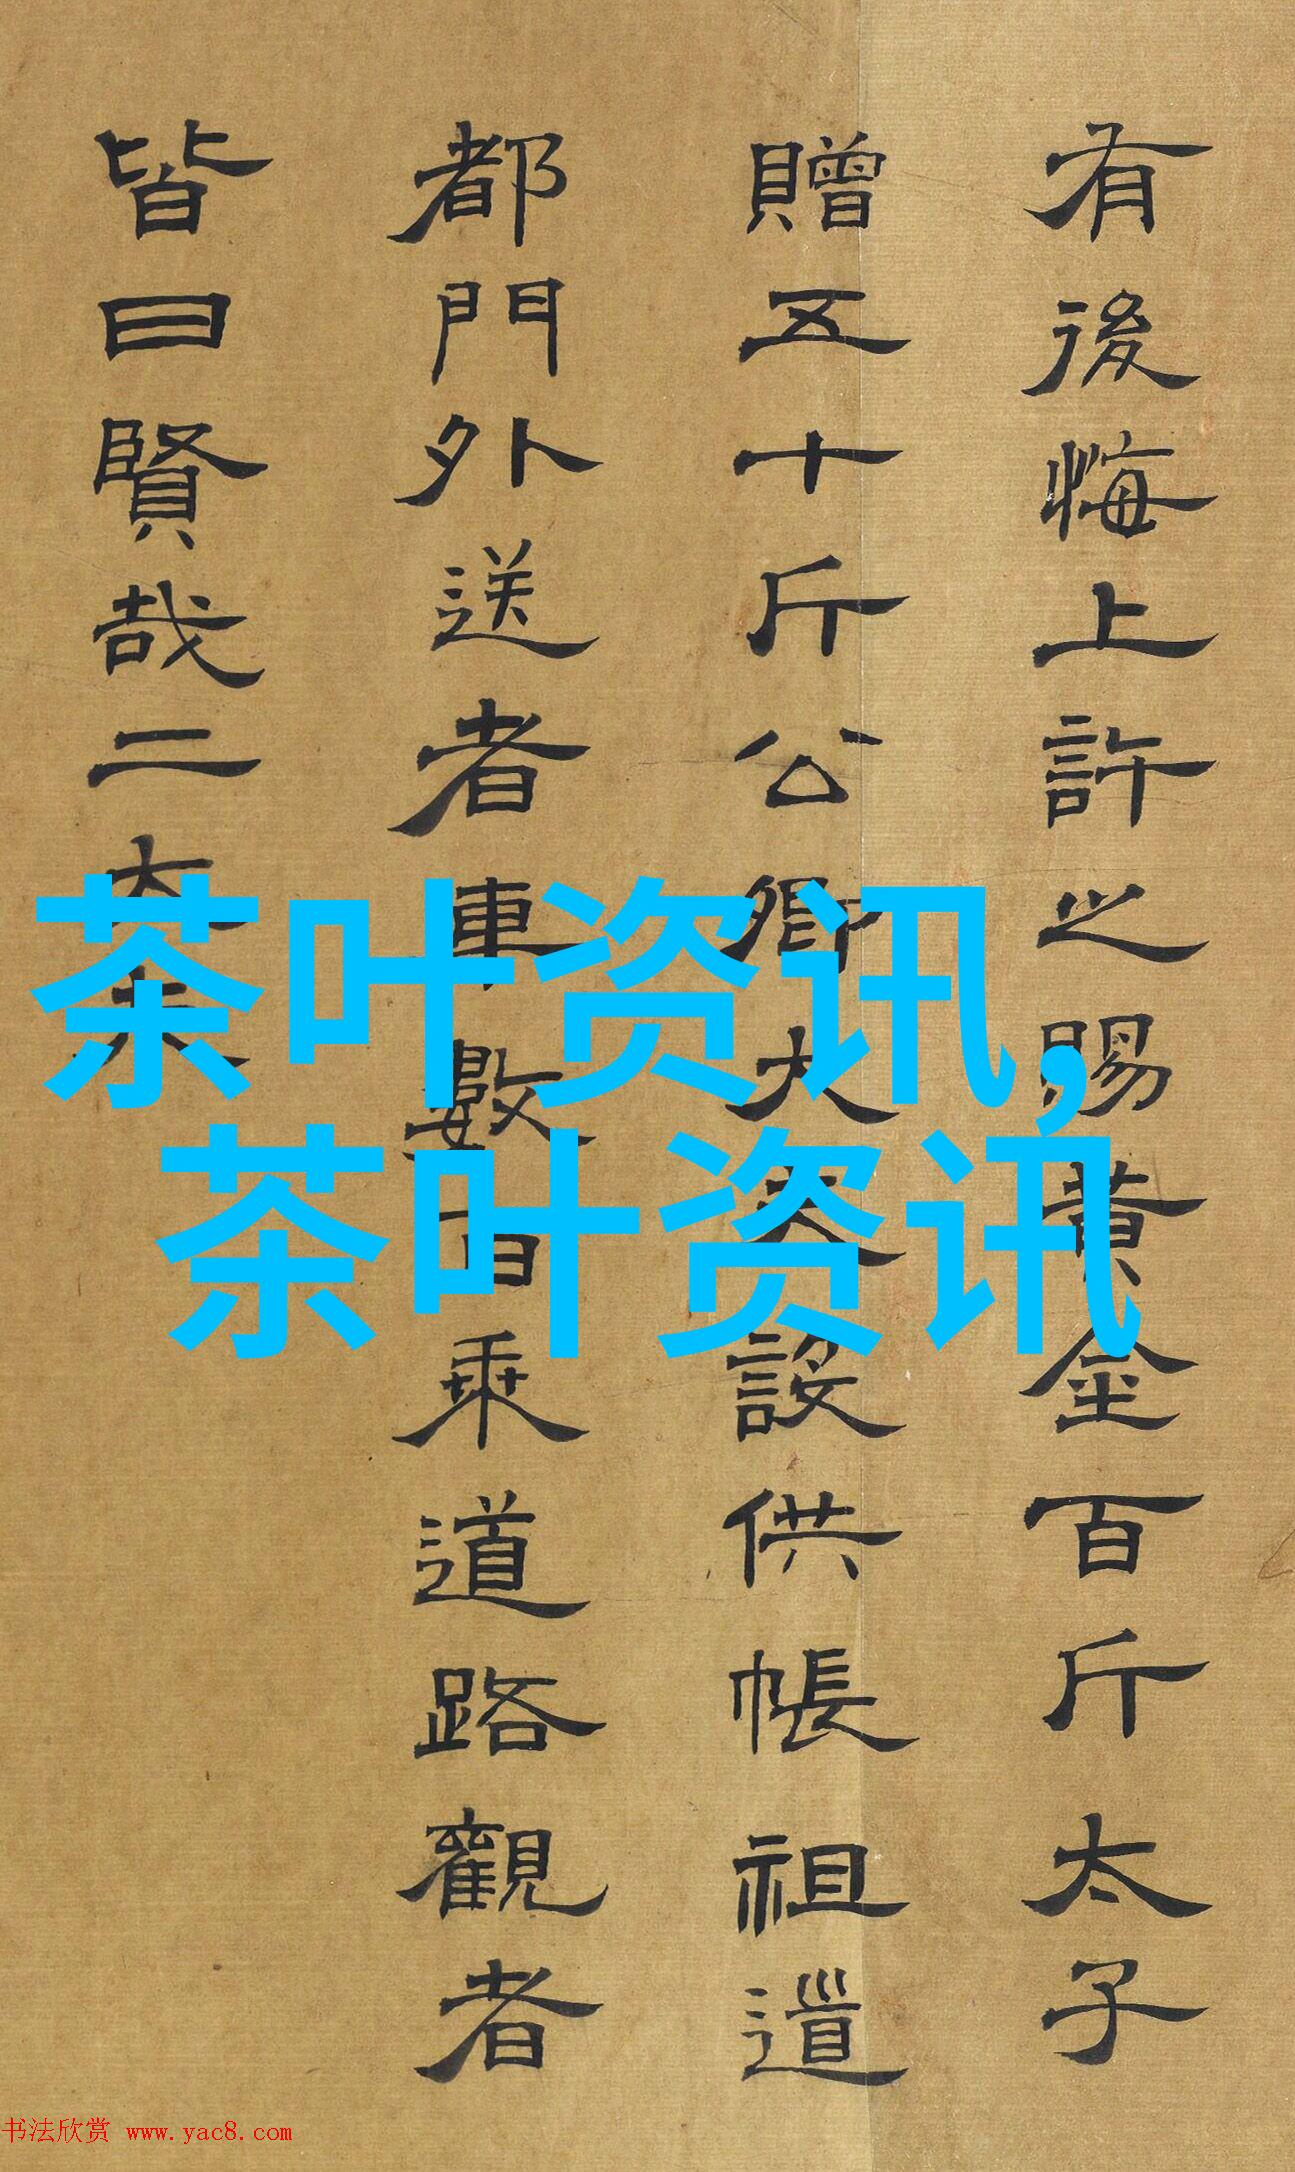 有後悔上許之賜黃金百斤太子
贈五十斤公卿大夫設供帳祖道
都門外送者車數百乘道路觀者
皆曰賢哉二大夫
茶叶资讯,
茶叶资讯
书法欣赏 www.yac8.com